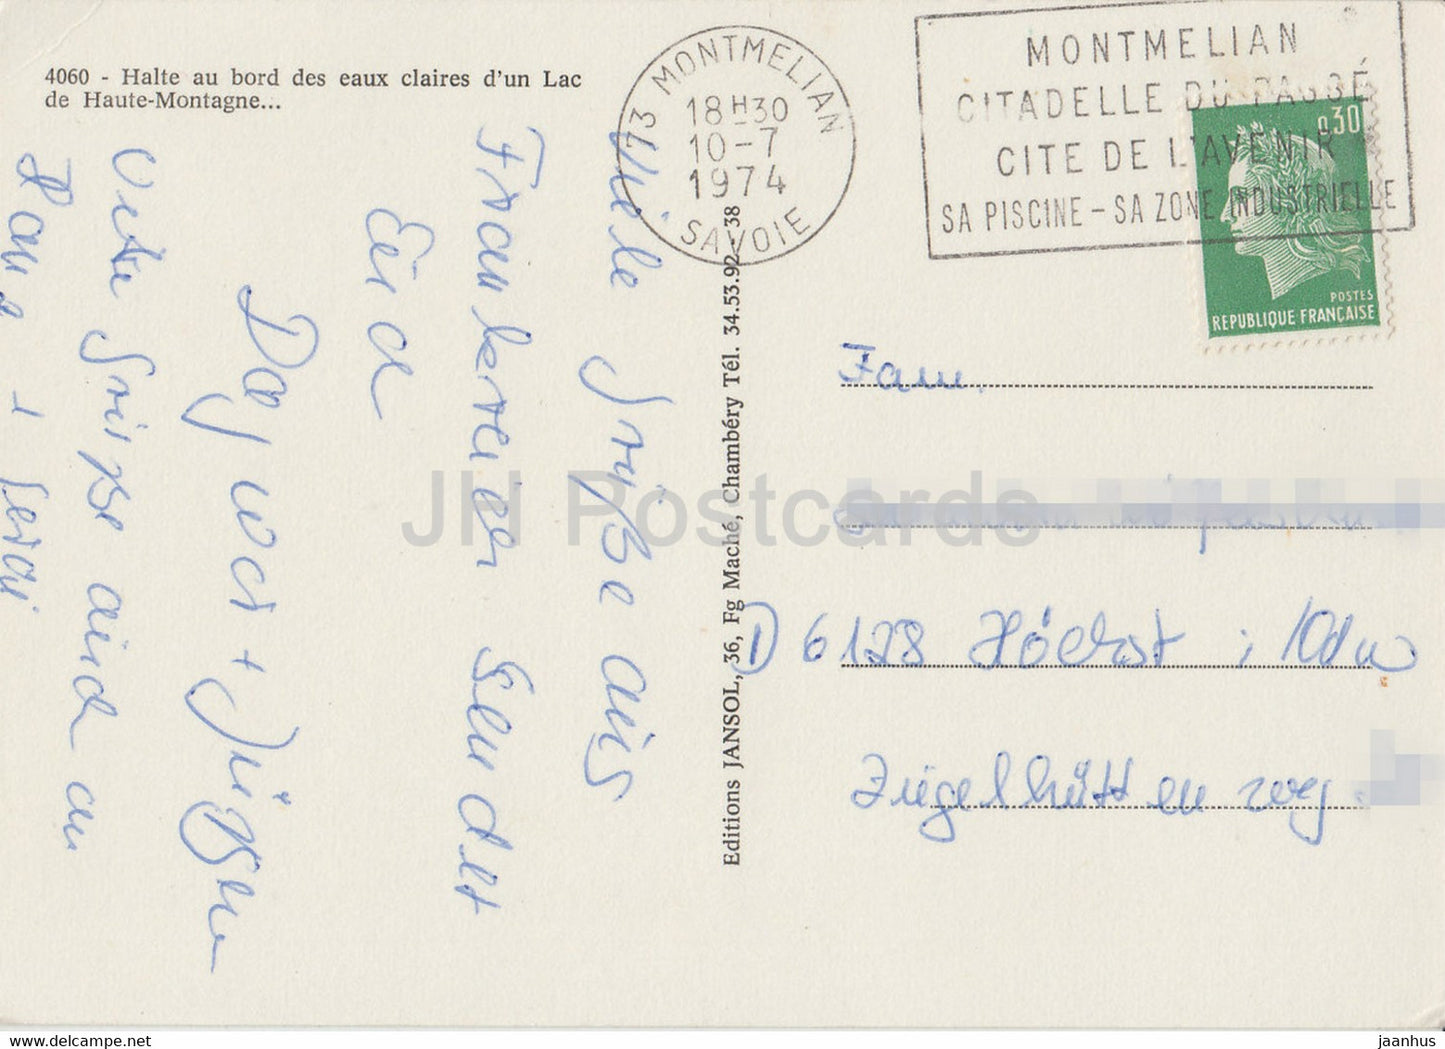 4060 - Halte au bord des eaux claires d'un Lac
de Haute-Montagne...
73 MONTMELIAN
18 H30
10-7
1974
SAVOIE
MONTMELIAN
CITADELLE DU PASSÉ
CITE DE L'AVENIR
SA PISCINE - SA ZONE INDUSTRIELLE
0,30
POSTES
REPUBLIQUE FRANÇAISE
Viele Grüße aus
Frankreich sendet
Euch
Dagmar + Jürgen
Viele Grüße auch an
Editions JANSOL, 36, Fg Maché, Chambéry Tél. 34.53.92 - 38
Fam.
D 6128 Höchst i. Odw
Ziegelhüttenweg
JH Postcards
www.delcampe.net
jaanhus